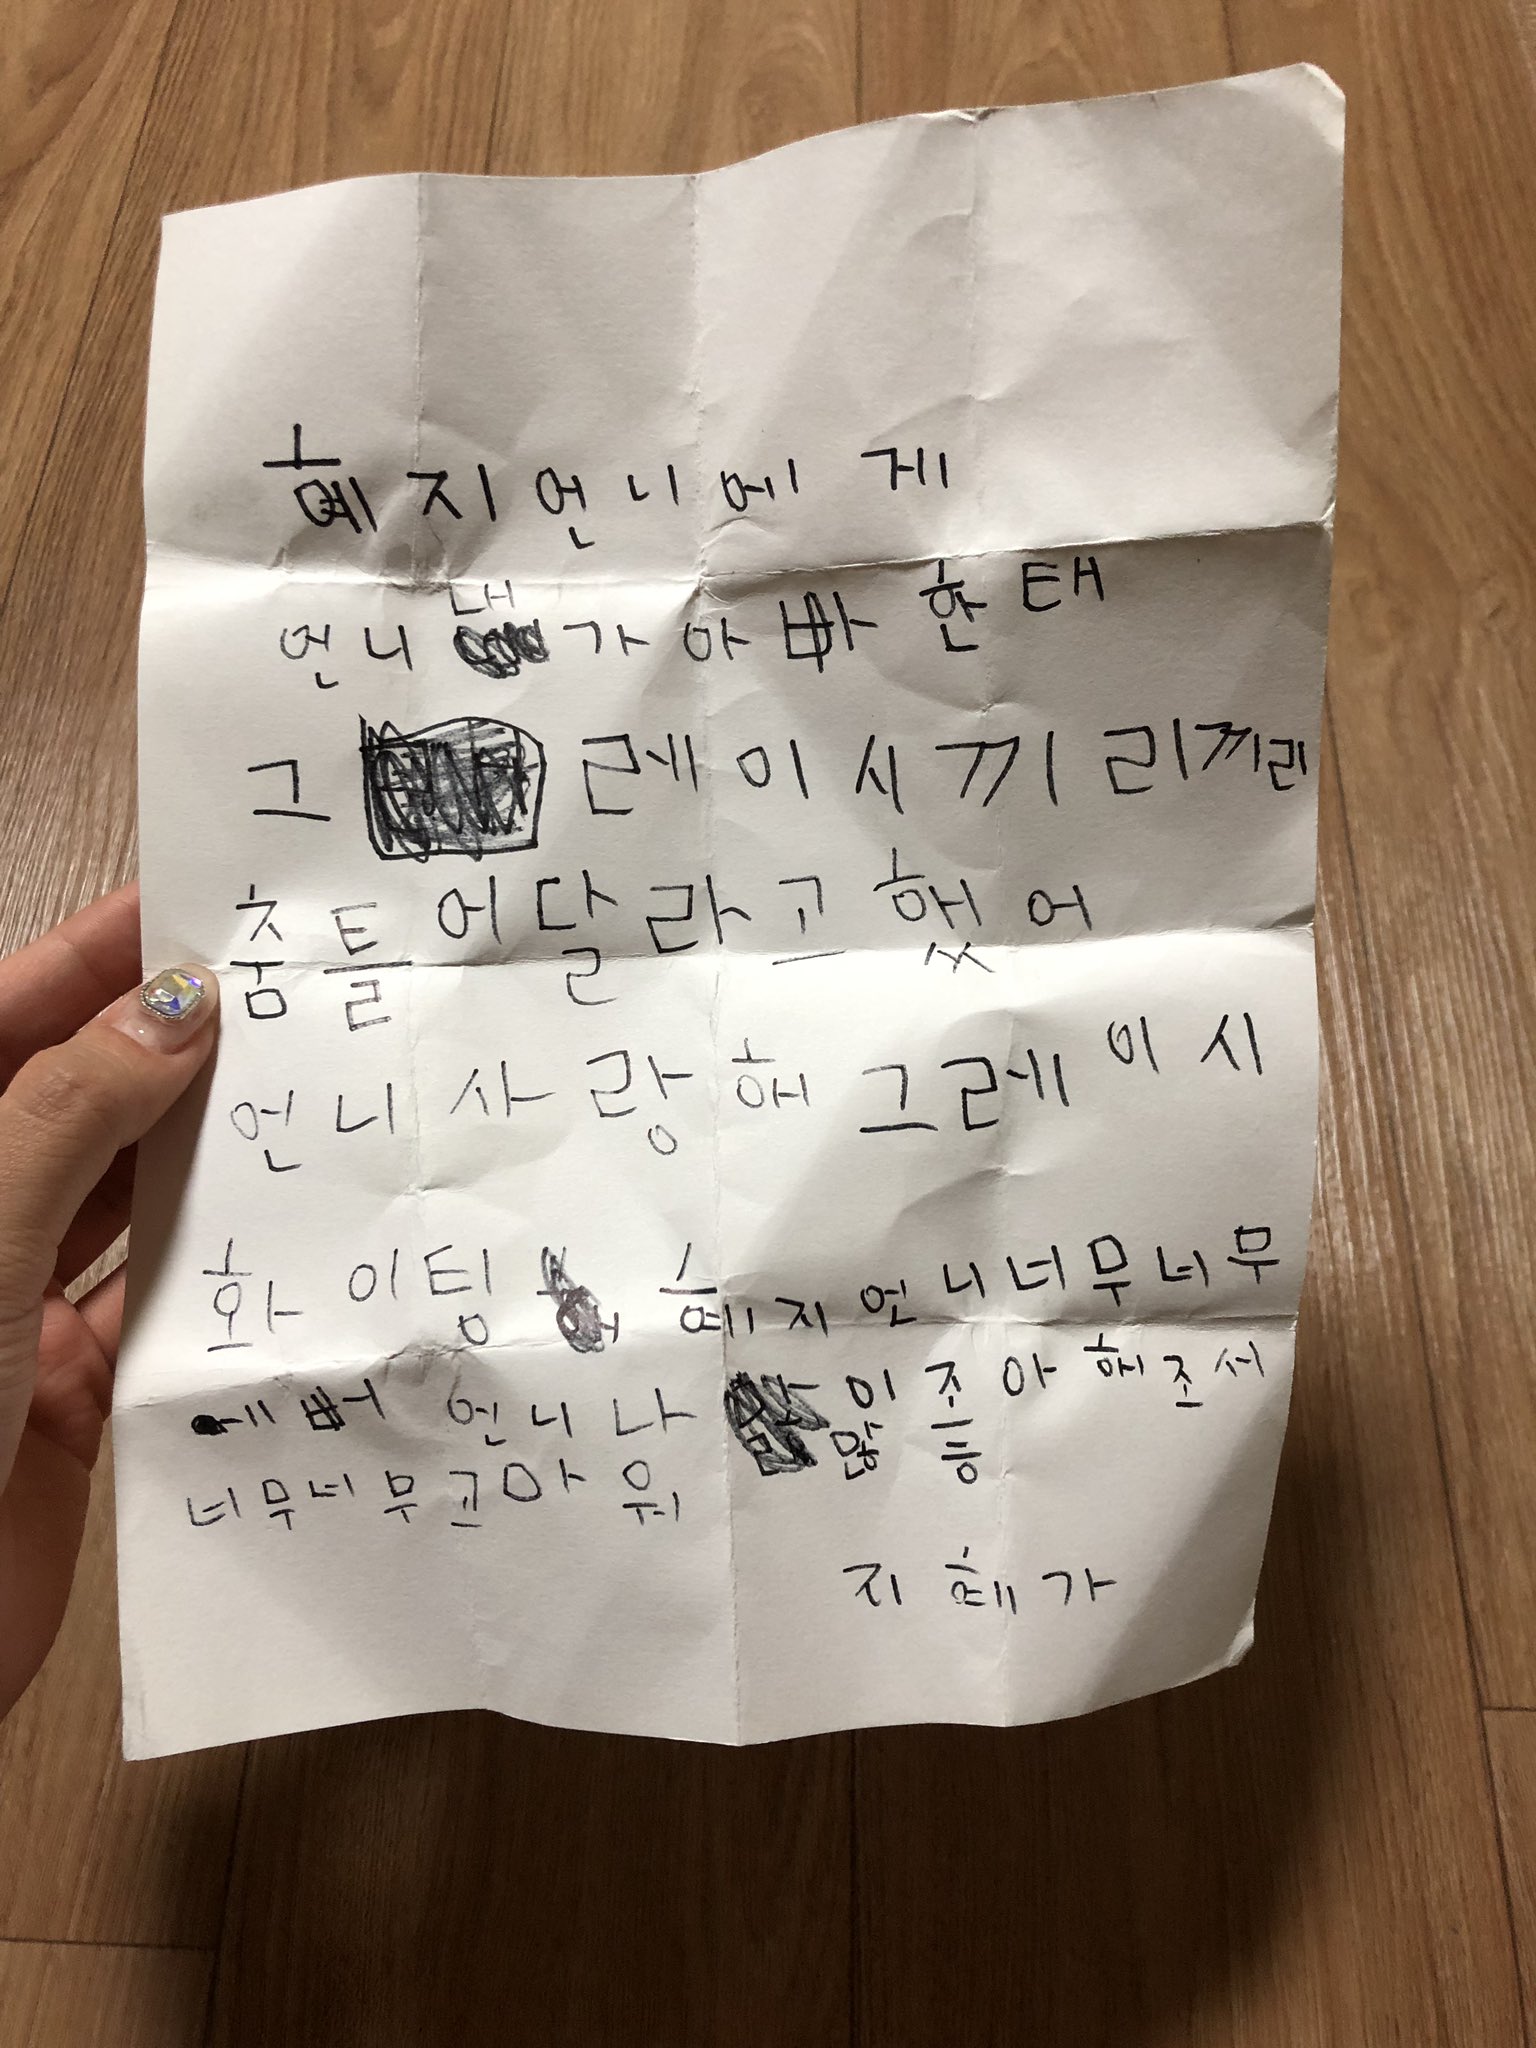 혜지언니에게
언니 내가 아빠한태
그레이시끼리끼리
춤틀어달라고 햇어
언니 사랑해 그레이시
화이팅 혜지언니 너무너무
에뻐 언니 나 많이 조아해조서
너무너무 고마워
지혜가